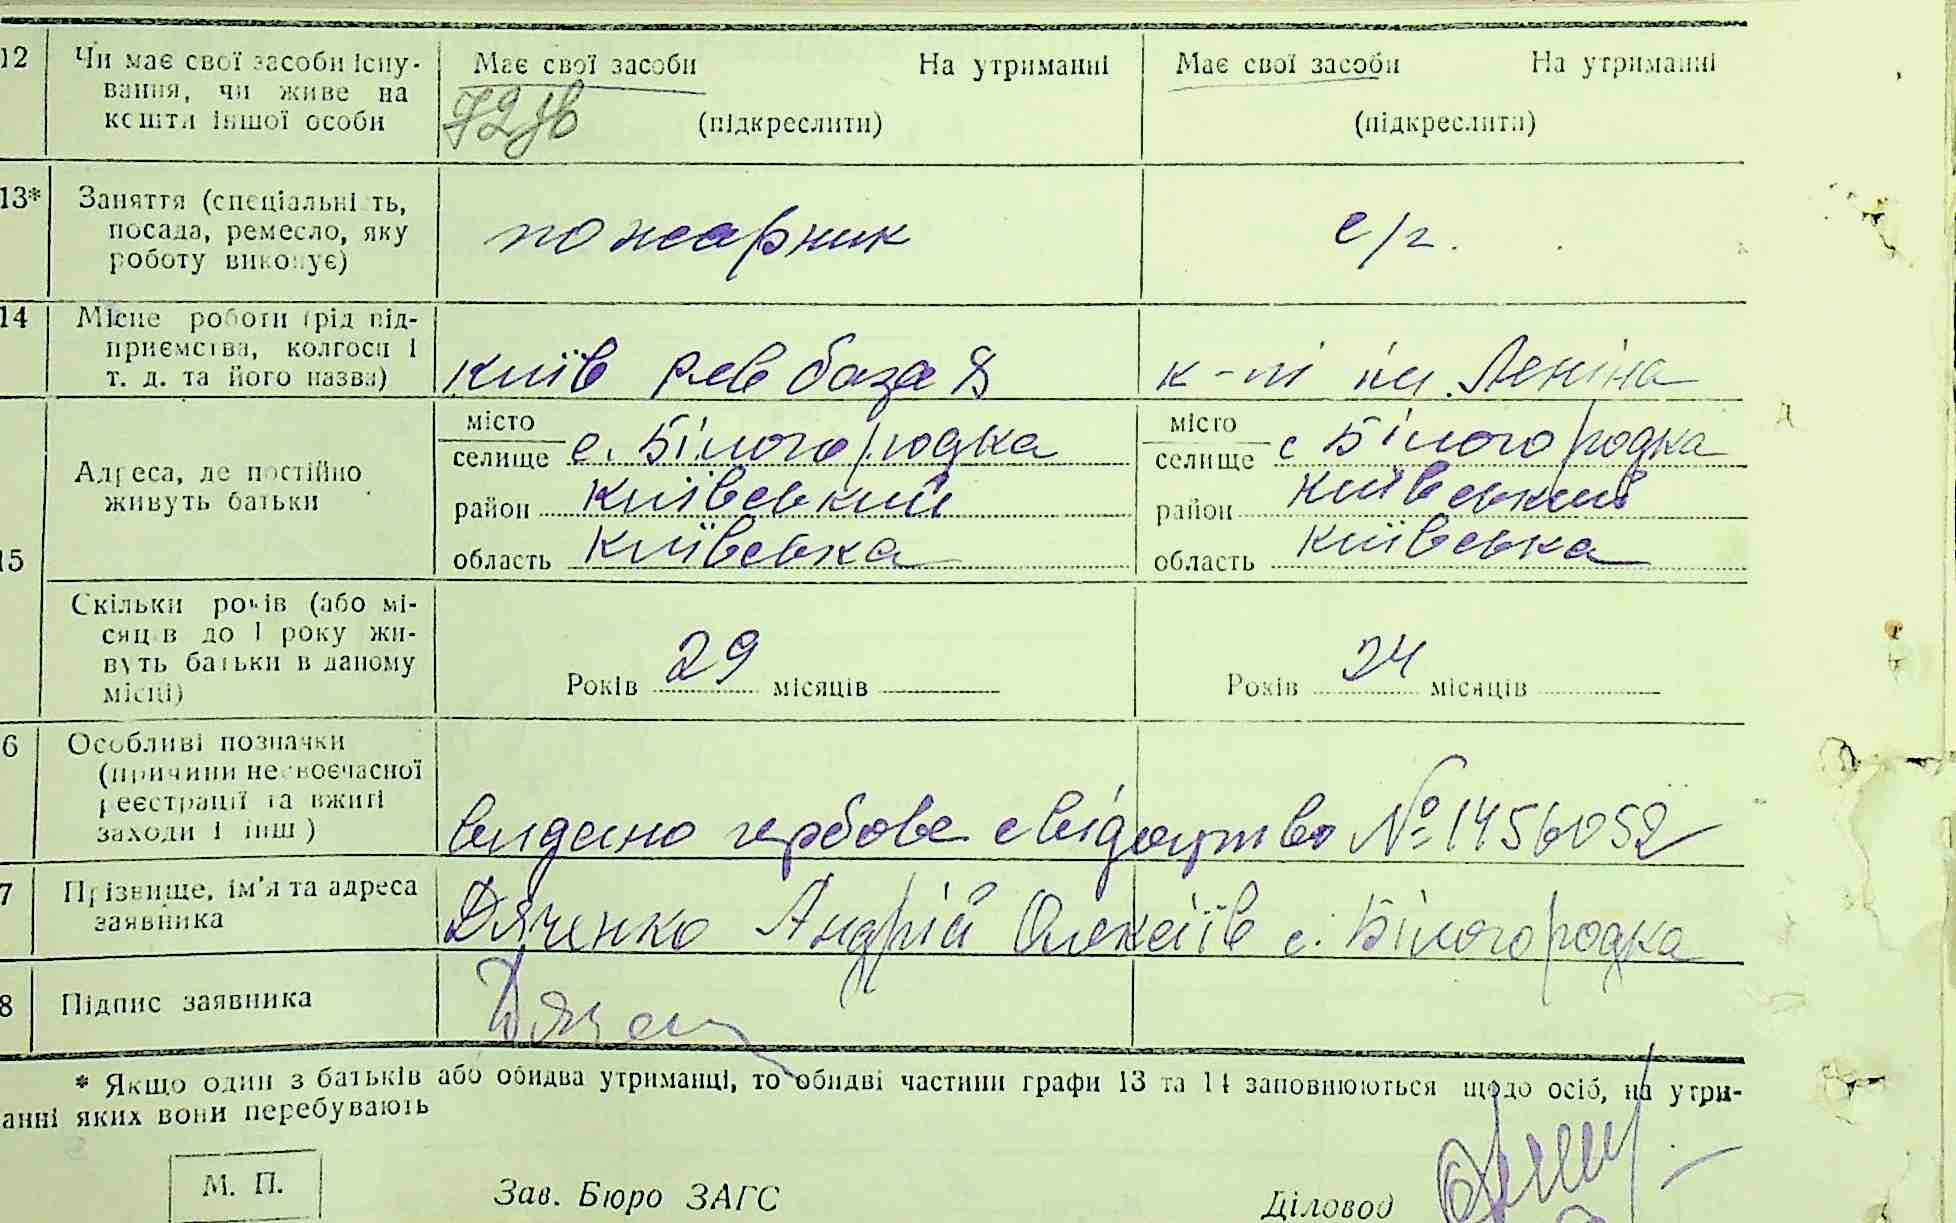 12 Чи має свої засоби існу- Має свої засоби На утриманні Має свої засоби На утриманні
вання, чи живе на
кошти іншої особи (підкреслити) (підкреслити)
13* Заняття (спеціальність,
посада, ремесло, яку пожарник с/г.
роботу виконує)
14 Місце роботи (рід під-
приємства, колгосп і
т. д. та його назва) Київ рев база к-пі ім. Леніна
місто місто
селище с. Білогородка селище с Білогородка
Адреса, де постійно
живуть батьки район Київський район Київський
15 область Київська область Київська
Скільки років (або мі-
сяців до 1 року жи-
вуть батьки в даному
місці) Років 29 місяців Років 24 місяців
6 Особливі позначки
(причини несвоєчасної
реєстрації та вжиті
заходи і інш) видано гербове свідоцтво № 1456052
7 Прізвище, ім'я та адреса
заявника Дяченко Андрій Олексіїв с. Білогородка
8 Підпис заявника
* Якщо один з батьків або обидва утриманці, то обидві частини графи 13 та 14 заповнюються щодо осіб, на утри-
анні яких вони перебувають
М. П. Зав. Бюро ЗАГС Діловод